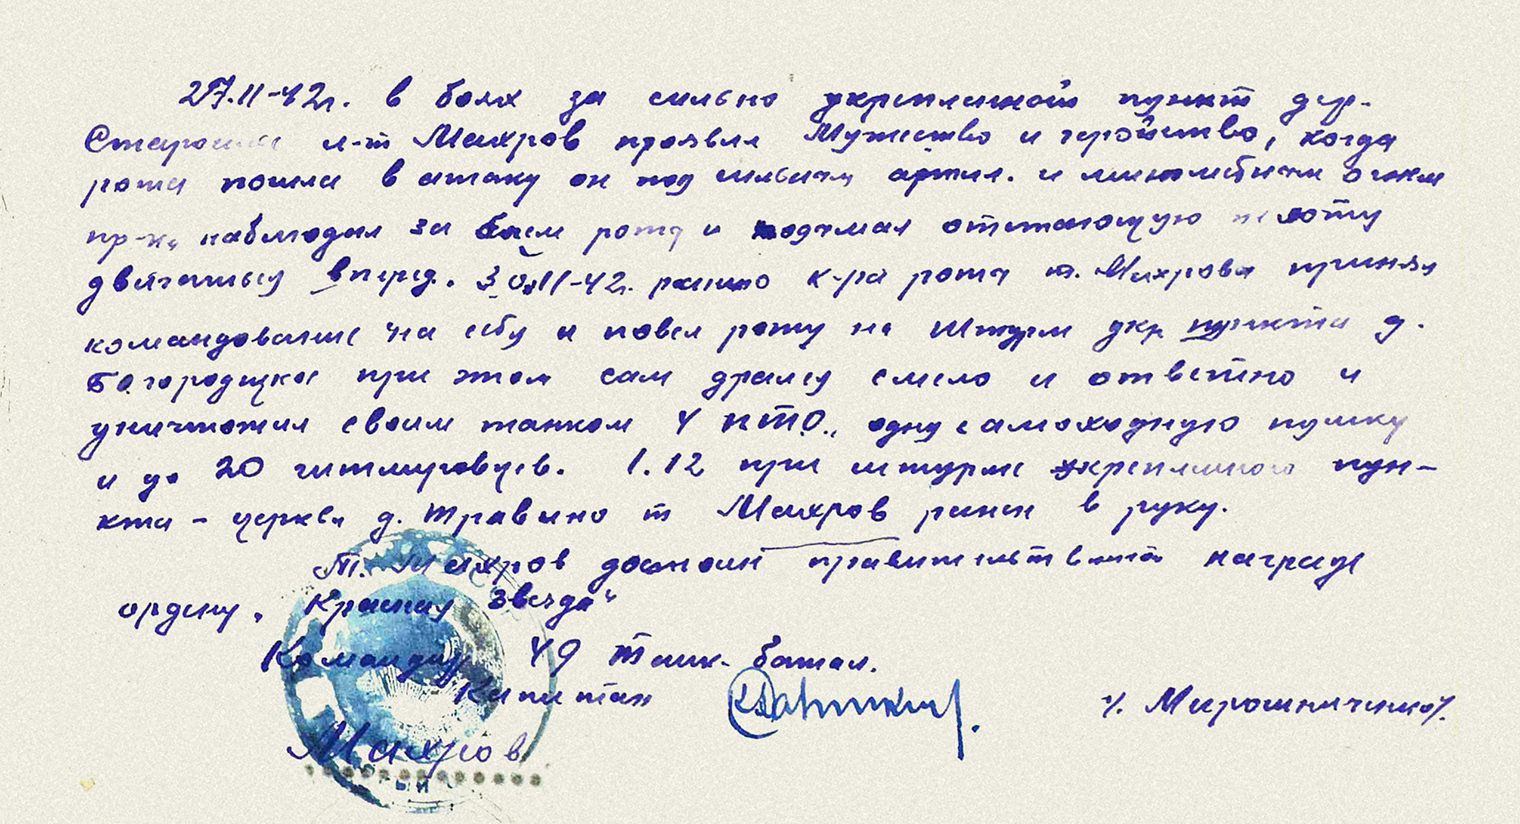 27.11-42г. в боях за сильно укрепленной пункт дер.
л-т Махров проявил мужество и геройство, когда
рота пошла в атаку он под сильным артил. и минометным огнем
пр-ка наблюдал за боем роты и подымал отстающую пехоту
двигаться вперед. 30.11-42г. ранило к-ра роты т. Махров принял
командование на себя и повел роту на штурм укр. пункта д.
Богородицкое при этом сам дрался смело и отвеTно и
уничтожил своим танком 4 ПТО., одну самоходную пушку
и до 20 гитлеровцев. 1.12 при штурме укрепленного пун-
кта - церкви д. Травино т Махров ранен в руку.
Т. Махров достоин правительственной награде
ордену „Красная Звезда“
Командир 49 танк. батал.
Капитан /. Мирошниченко/.
Махров